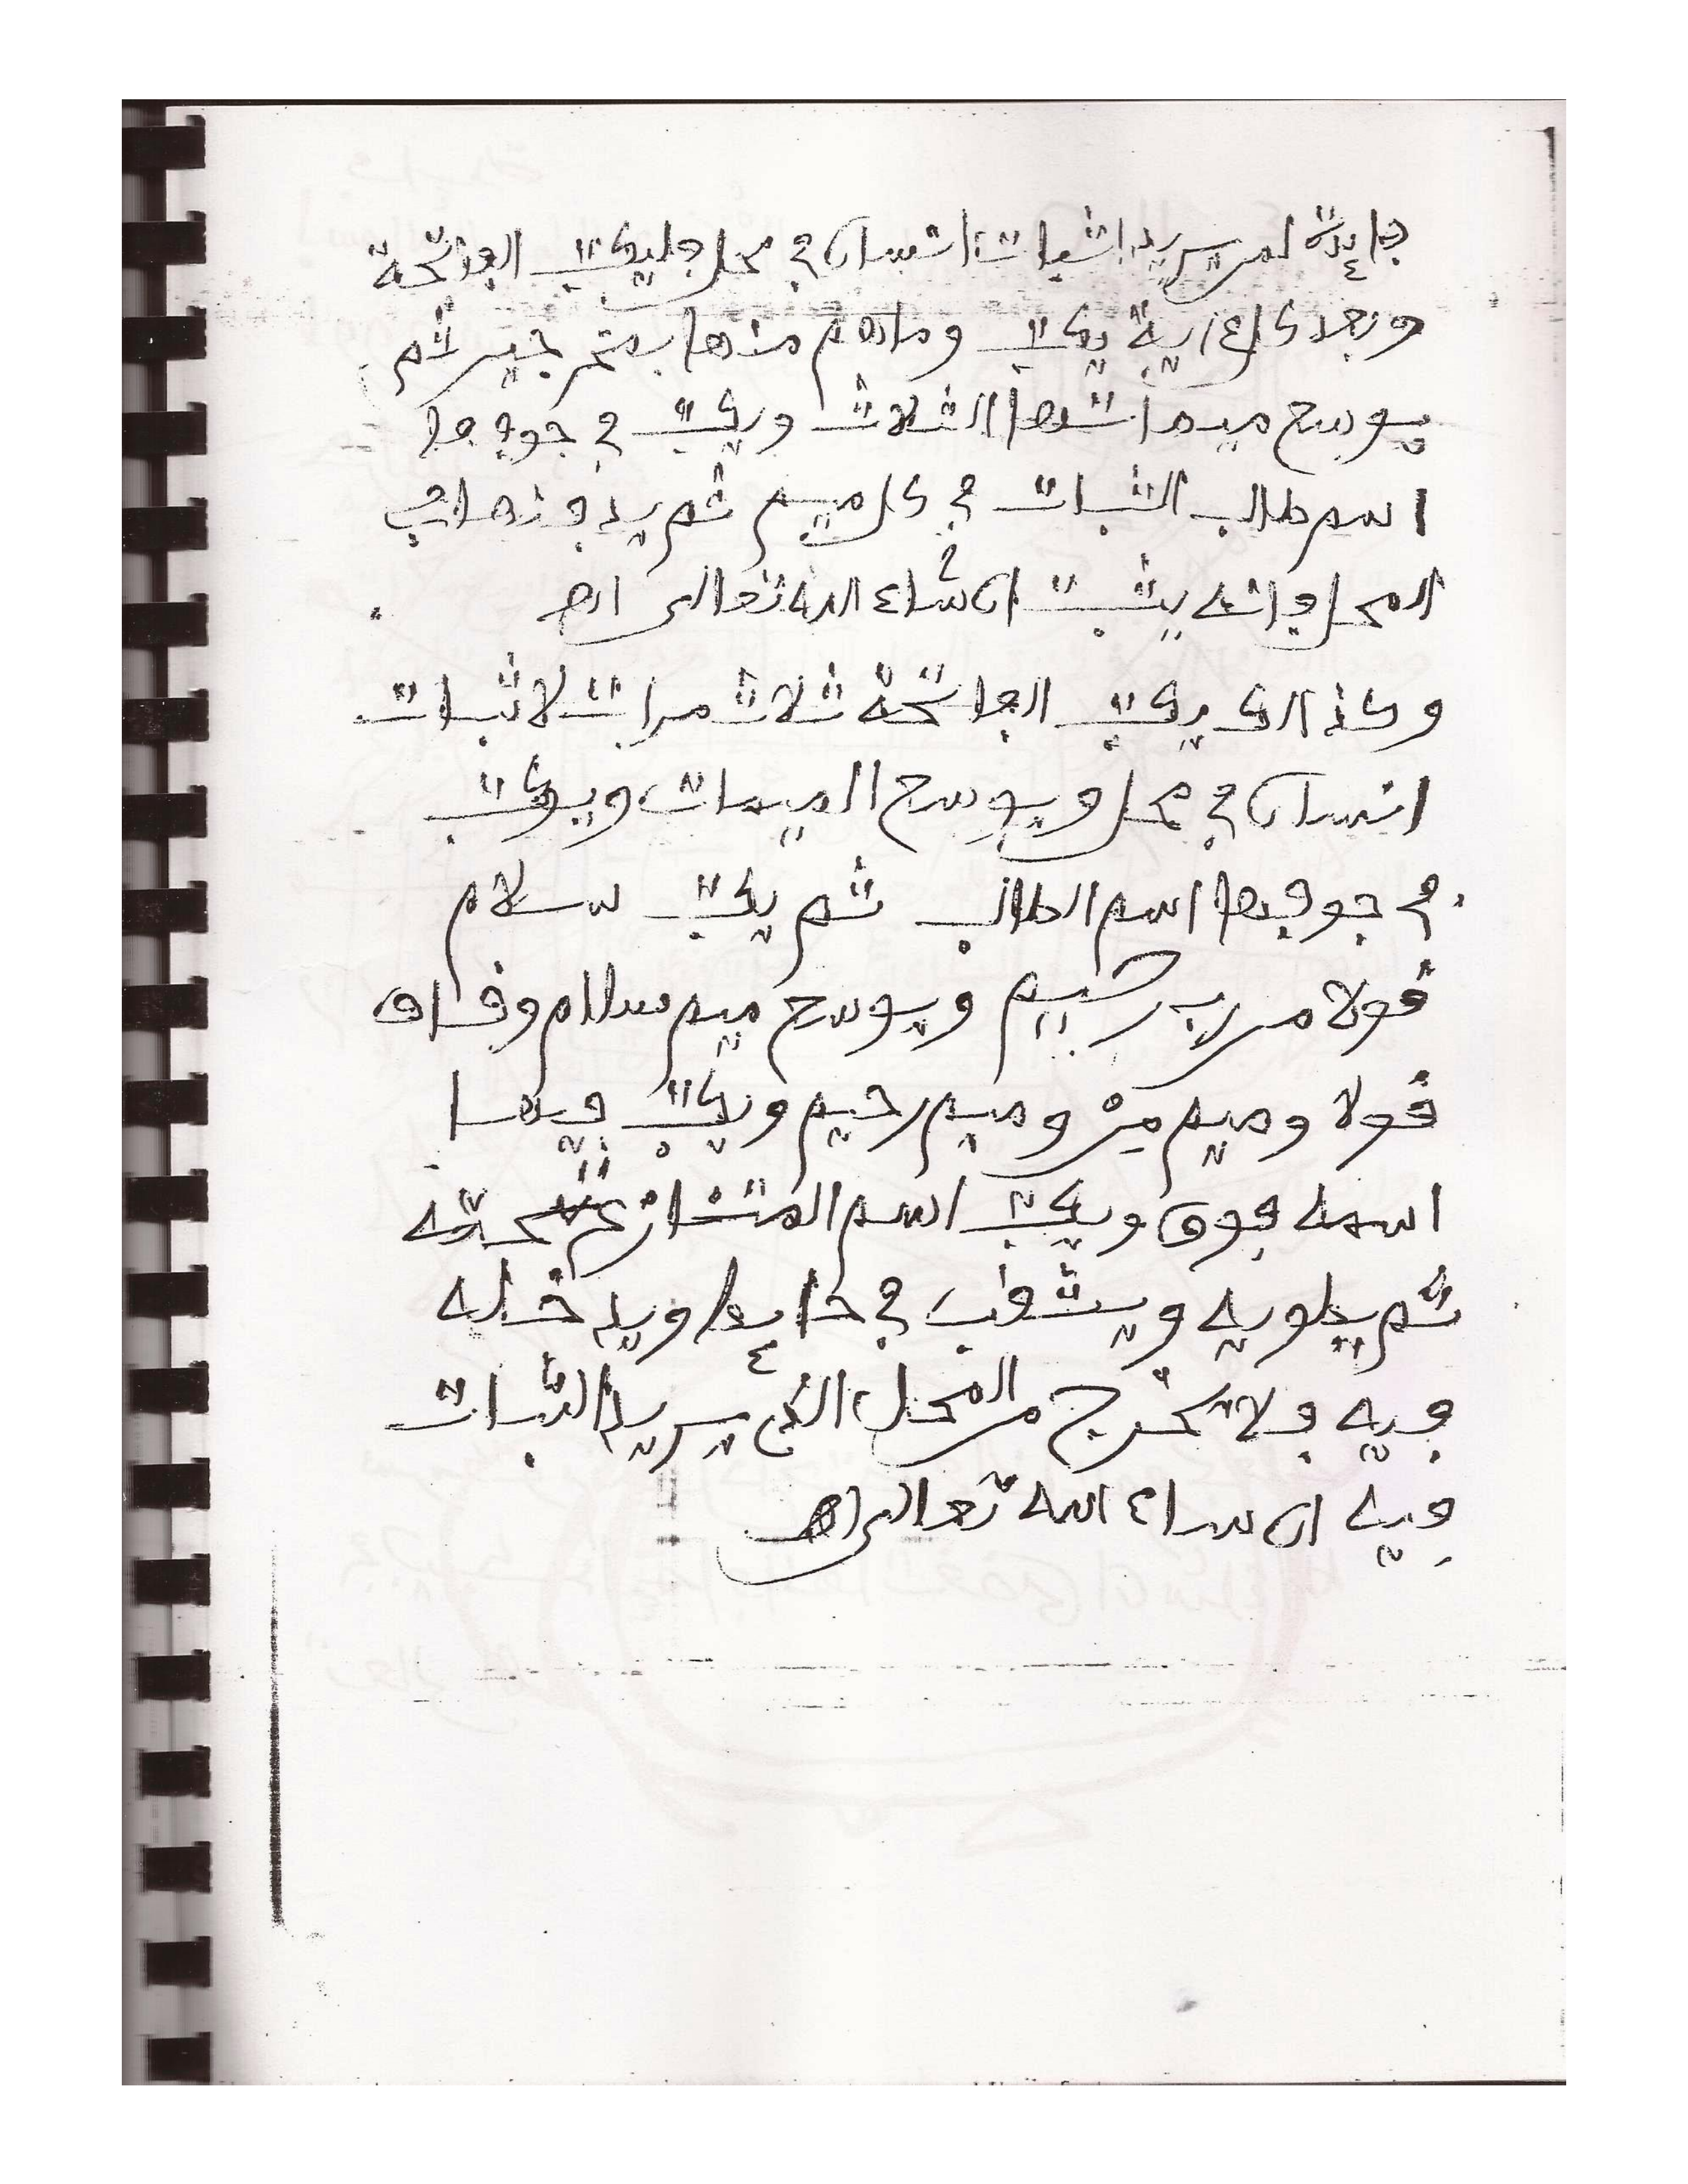 فائدة لمن يريد اثبات انسان في محل فليكتب الفاتحة
وبعد كل ءاية يكتب وما هم منها بمخرجين ثم
يوسع ميماتها الثلاث ويكتب في جوفها
اسم طالب الثبات في كل ميم ثم يدفنها في
المحل فانه يثبت ان شاء الله تعالى اهـ
وكذالك يكتب الفاتحة ثلاث مرات لاثبات
انسان في محل ويوسع الميمات ويكتب
في جوفها اسم الطالب ثم يكتب سلام
قولا من رب رحيم ويوسع ميم سلام وقاف
قولا وميم من وميم رحيم ويكتب فيها
اسمه فوق ويكتب اسم المتنازع تحته
ثم يطويه ويثقب في حايط ويدخله
فيه فلا يخرج من المحل الذي يريد الثبات
فيه ان ساء الله تعالى اهـ